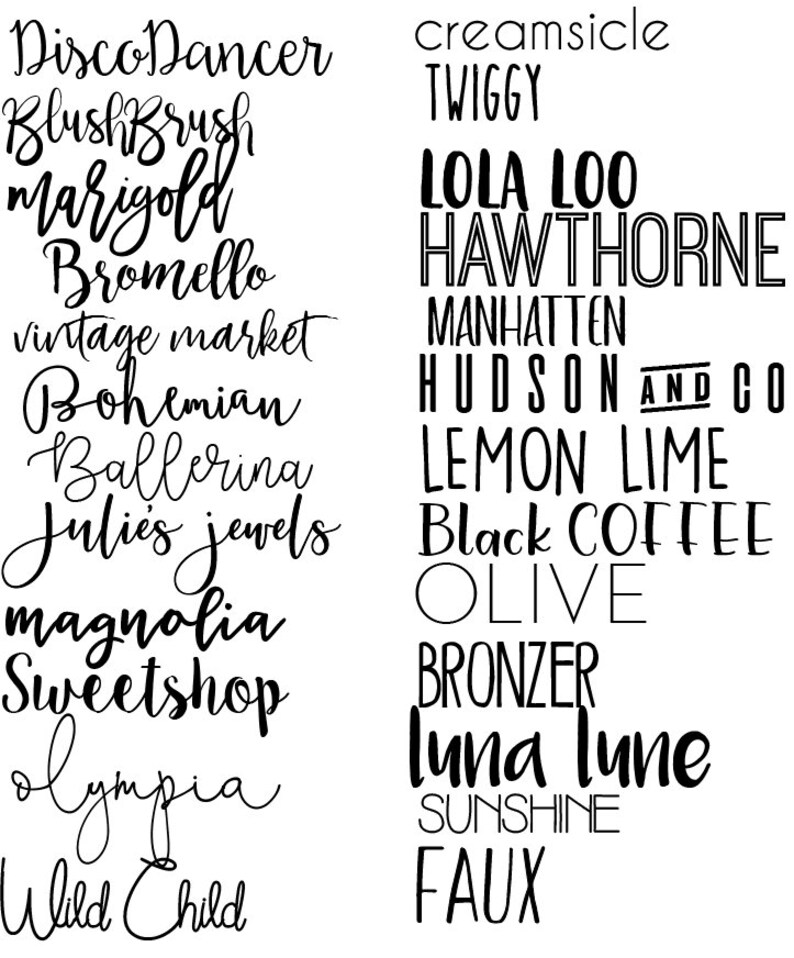 DiscoDancer
BlushBrush
marigold
Bromello
vintage market
Bohemian
Ballerina
Julie's jewels
magnolia
Sweetshop
olympia
Wild Child
creamsicle
TWIGGY
LOLA LOO
HAWTHORNE
MANHATTEN
HUDSON AND CO
LEMON LIME
Black COFFEE
OLIVE
BRONZER
luna lune
SUNSHINE
FAUX